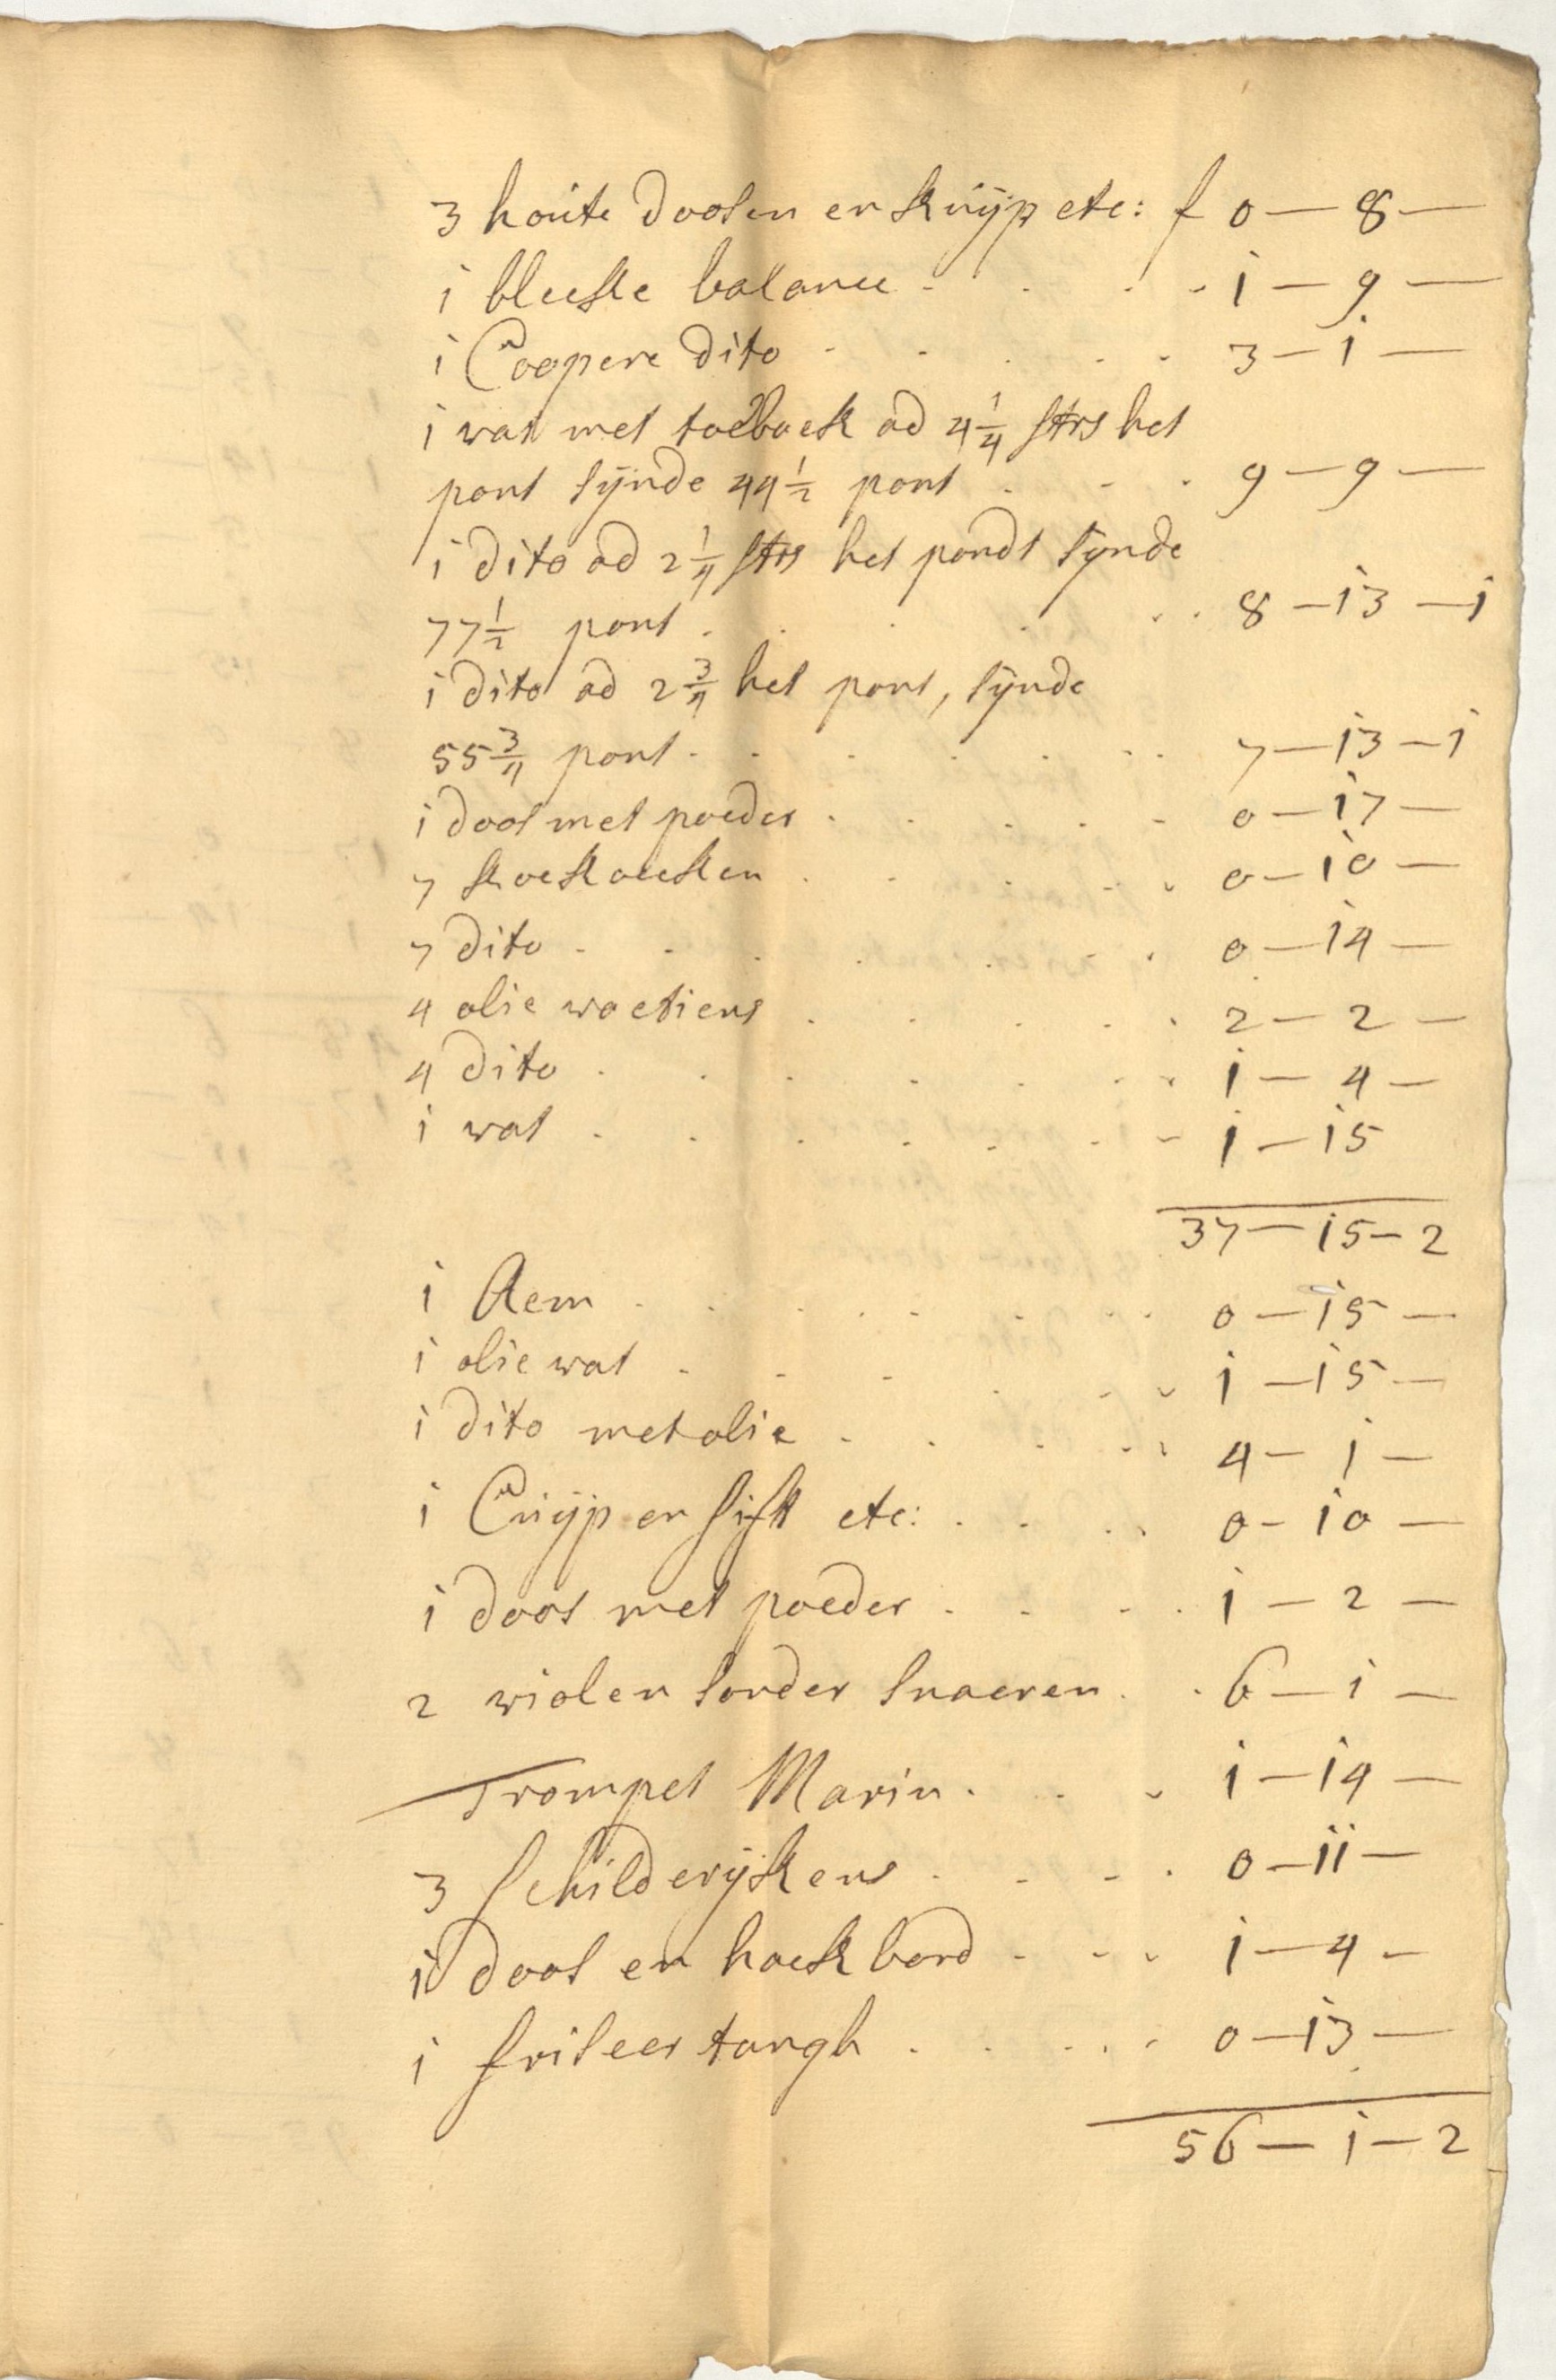 3 houte doosen en kuijp etc: f 0 — 8 —
1 bleeke balance . . . . 1 — 9 —
1 Coopere dito . . . . . 3 — 1 —
1 vat met toeback ad 4 1/4 strs het
pont sijnde 44 1/2 pont . . . 9 — 9 —
1 dito ad 2 1/4 strs het pondt sijnde
77 1/2 pont . . . . . . 8 — 13 — 1
1 dito ad 2 3/4 het pont, sijnde
55 3/4 pont . . . . . . 7 — 13 — 1
1 doos met poeder . . . . . 0 — 17 —
7 . . . . . 0 — 10 —
7 dito . . . . . . 0 — 14 —
4 olie vaetiens . . . . . 2 — 2 —
4 dito . . . . . . . 1 — 4 —
1 vat . . . . . . . 1 — 15
37 — 15 — 2
1 Aem . . . . . . . 0 — 15 —
1 olie vat . . . . . . 1 — 15 —
1 dito met olie . . . . . 4 — 1 —
1 Cuijp en sift etc: . . . . 0 — 10 —
1 doos met poeder . . . . 1 — 2 —
2 violen sonder snaeren . . 6 — 1 —
Trompet Marin . . . 1 — 14 —
3 schilderijkens . . . . 0 — 11 —
1 doos en hackbord . . . 1 — 4 —
1 friseer tangh . . . . . 0 — 13 —
56 — 1 — 2